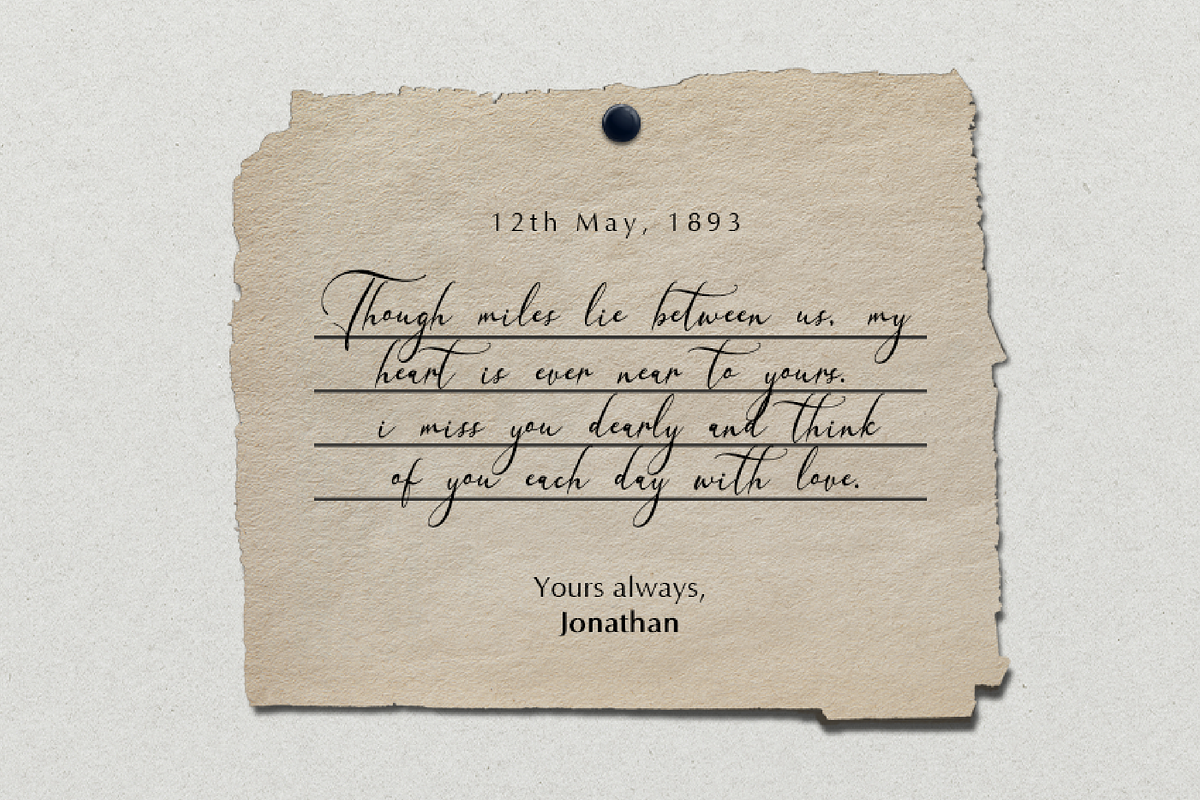 12th May, 1893
Though miles lie between us. my
heart is ever near to yours.
i miss you dearly and think
of you each day with love.
Yours always,
Jonathan